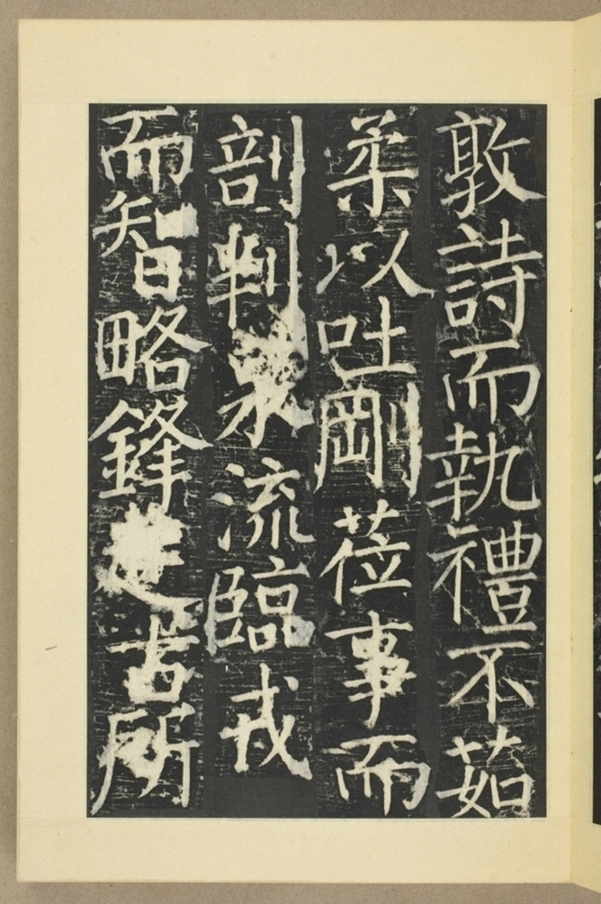 敦詩而執禮不茹
柔以吐剛莅事而
剖判泉流臨戎
而智略鋒古所